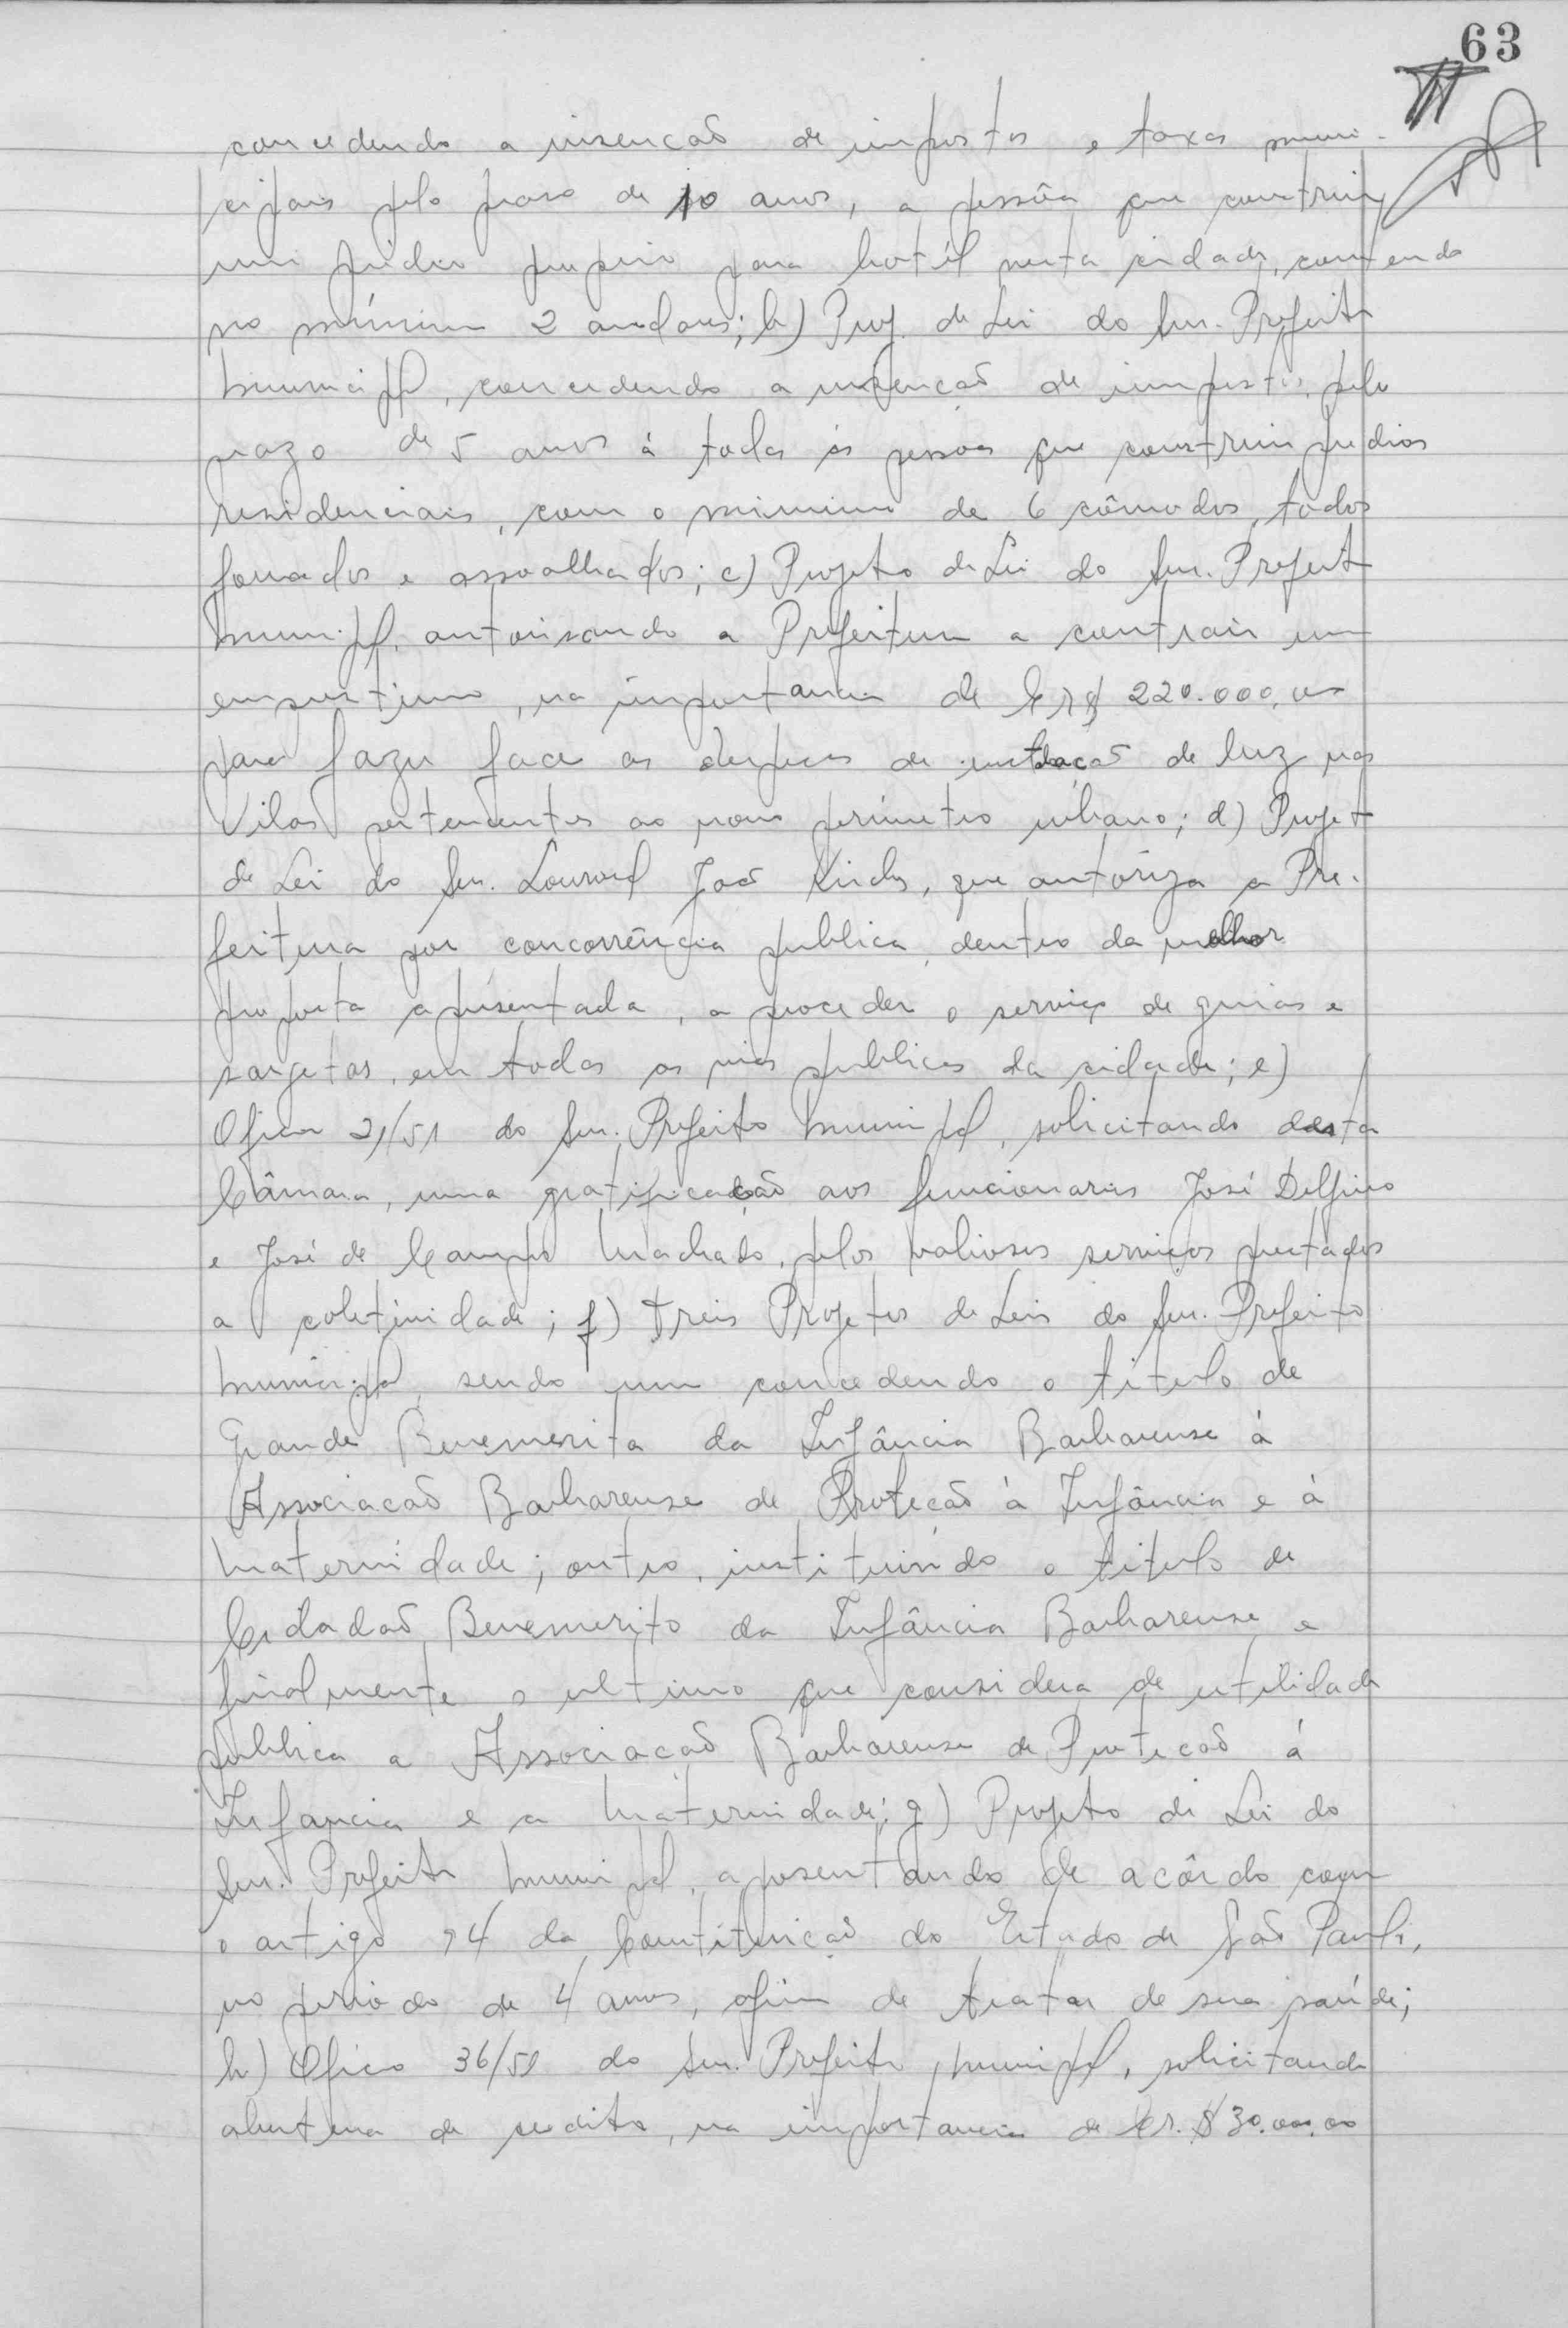 63
concedendo a insenção de impostos e taxas muni-
cipais pelo praso de 10 anos, a pessôa que construir
um prédio proprio para hotél nesta cidade, contendo
no mínimo 2 andares; b) Proj. de Lei do Snr. Prefeito
Municipal, concedendo a insenção de impostos, pelo
prazo de 5 anos à todas ás pessoas que construir predios
residenciais, com o minimo de 6 cômodos, todos
forrados e assoalhados; c) Projeto de Lei do Snr. Prefeito
Municipal, autorisando a Prefeitura a contrair um
emprestimo, na importancia de Cr$ 220.000,00
para fazer face as despesas de instalação de luz nas
Vilas pertencentes ao novo perímetro urbano; d) Projeto
de Lei do Snr. Lourival João, que autoriza a Pre-
feitura por concorrência publica, dentro da melhor
proposta apresentada, a proceder o serviço de guias e
sargetas, em todas as vias publicas da cidade; e)
Oficio 21/51 do Snr. Prefeito Municipal, solicitando desta
Câmara, uma gratificação aos funcionarios José Delfino
e José de Campos Machado, pelos valiosos serviços prestados
a coletividade; f) Treis Projetos de Leis do Snr. Prefeito
Municipal, sendo um concedendo o titulo de
Grande Benemerita da Infância Barbarense à
Associacão Barbarense de Protecão à Infância e à
Maternidade; outro, instituindo o titulo de
Cidadão Benemerito da Infância Barbarense e
finalmente o ultimo que considera de utilidade
publica a Associacão Barbarense de Protecão á
Infancia e a Maternidade; g) Projeto de Lei do
Snr. Prefeito Municipal, aposentando de acôrdo com
o artigo 94 da Constituicão do Estado de São Paulo,
no periodo de 4 anos, afim de tratar de sua saúde;
h) Oficio 36/51 do Snr. Prefeito Municipal, solicitando
abertura de credito, na importancia de Cr. $ 30.000,00